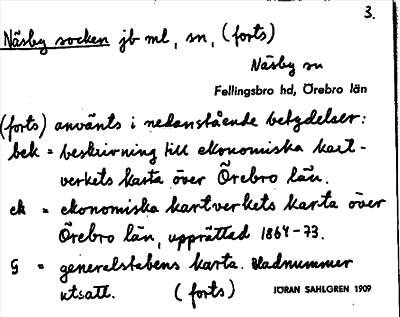 3.
Näsby socken jb ml, sn, (forts)
Näsby sn
Fellingsbro hd, Örebro län
(forts) använts i nedanstående betydelser:
bek = beskrivning till ekonomiska kart-
verkets karta över Örebro län.
ek = ekonomiska kartverkets karta över
Örebro län, upprättad 1864-73.
G = generalstabens karta. Bladnummer
utsatt. (forts) JÖRAN SAHLGREN 1909